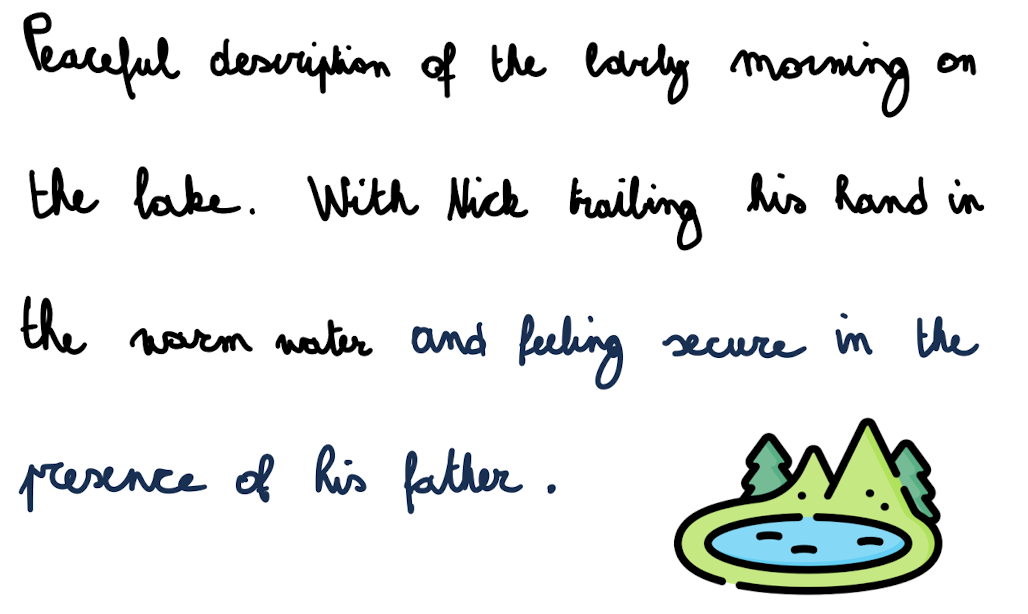 Peaceful description of the early morning on
the lake. With Nick trailing his hand in
the warm water and feeling secure in the
presence of his father.